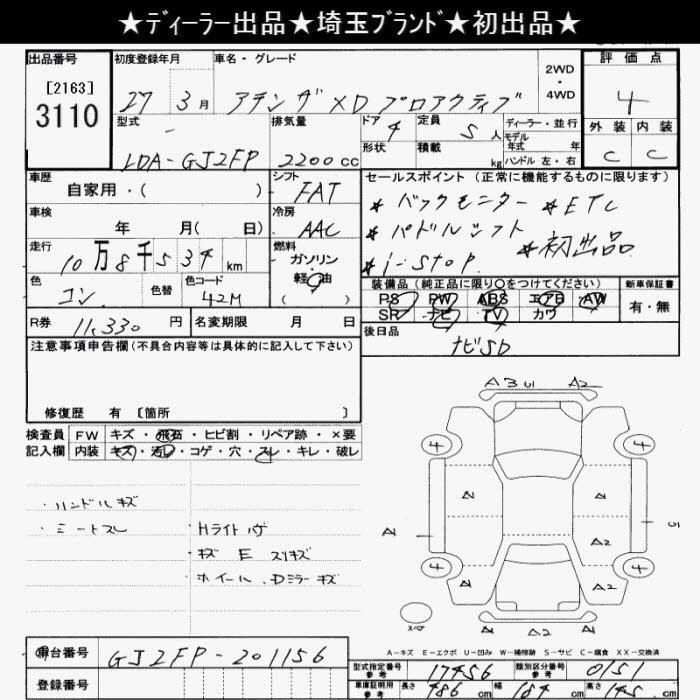 ★ディーラー出品★埼玉ブランド★初出品★
出品番号 初度登録年月 車名・グレード 2WD・4WD 評価点
[2163]
3110
27年 3月 アテンザ XD プロアクティブ 4
型式 排気量 ドア 4 定員 5人 ディーラー・並行 外装 内装
形状 積載 kg モデル年式 年
LDA-GJ2FP 2200cc ハンドル 左・右 C C
車歴 シフト セールスポイント(正常に機能するものに限ります)
自家用・( ) FAT ★バックモニター ★ETC
車検 冷房 ★パドルシフト
年 月( 日) AAC ★初出品
走行 燃料 ★i-stop.
10万8千534km ガソリン
軽油
( )
装備品(純正品に限り○をつけてください) 新車保証書
色 色替 色コード PS PW ABS エアB AW 有・無
コン 42M SR ナビ TV カワ
R券 11,330円 名変期限 月 日 後日品
ナビSD
注意事項申告欄(不具合内容等は具体的に記入して下さい)
修復歴 有 [箇所 ]
検査員 FW キズ・飛石・ヒビ割・リペア跡・×要
記入欄 内装 キズ・汚レ・コゲ・穴・スレ・キレ・破レ
・ハンドルキズ
・シートスレ ・Hライトハゲ
・キズ E スリキズ
・ホイール.Dミラーキズ
A3 U1 A2
4 4
A2
A2
4 4
A2
A2 A2 A2
A-キズ E-エクボ U-凹み W-補修跡 S-サビ C-腐食 XX-交換済
車台番号 GJ2FP-201156
型式指定番号 参考 17456 類別区分番号 参考 0151
登録番号
車庫証明用 参考 長さ 486cm 幅 184cm 高さ 145cm